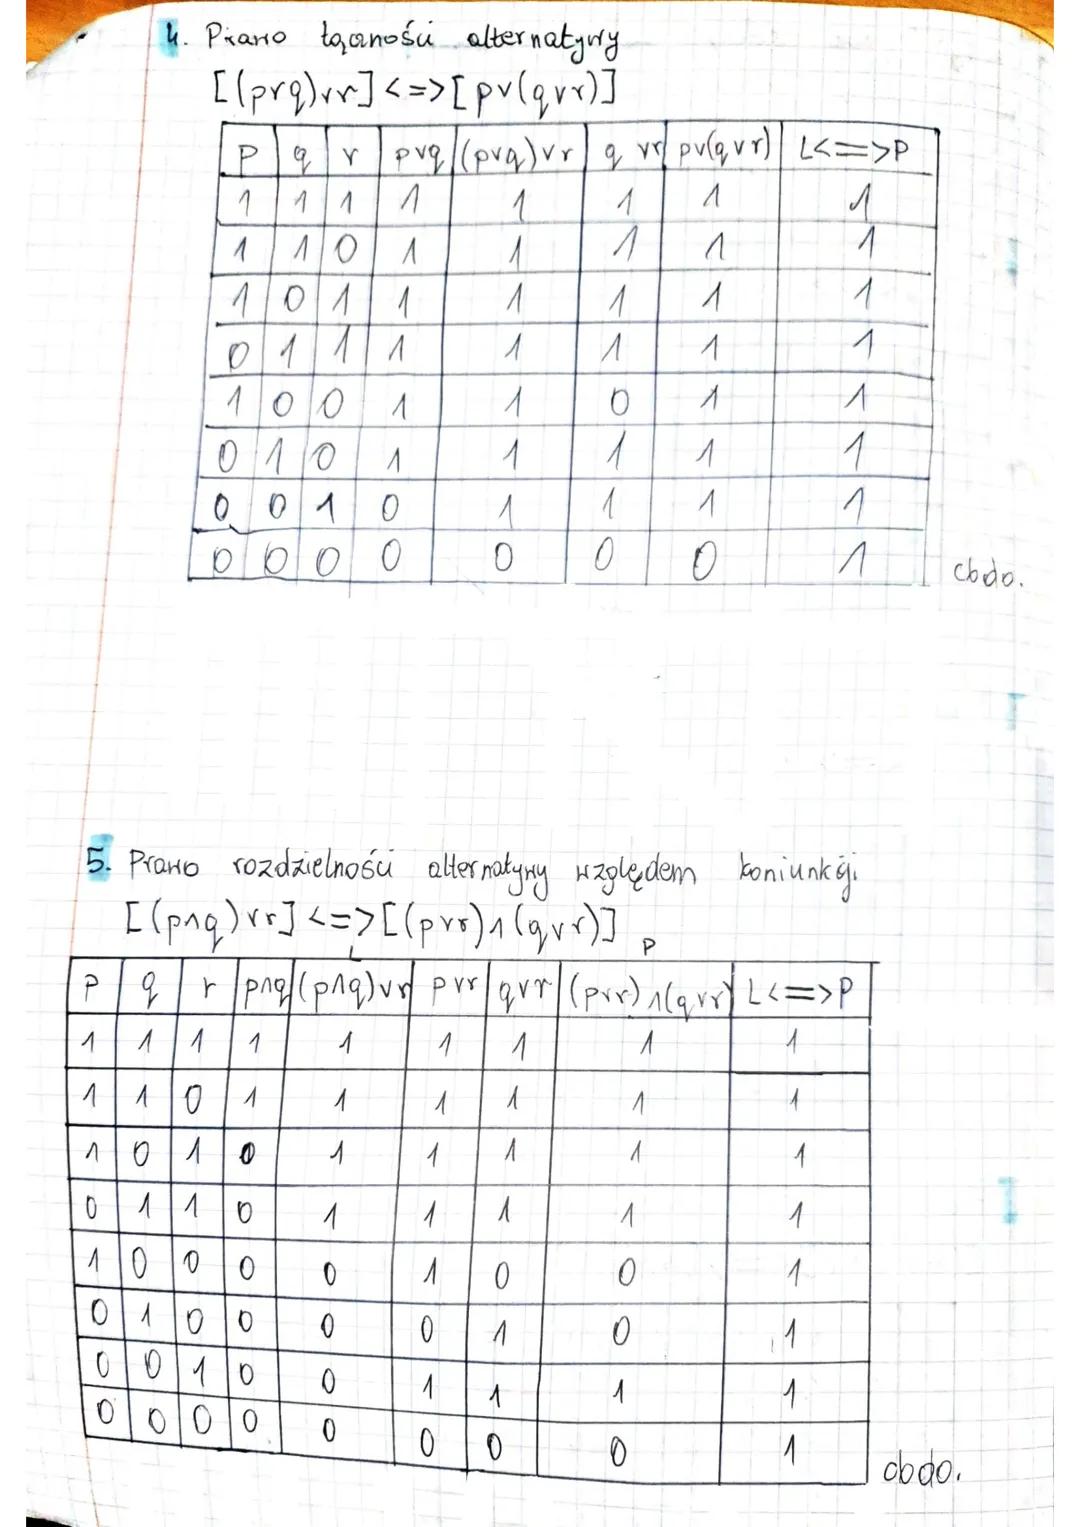 4. Prawo łączności alternatywy
[(pvq)vr] <=> [pv(qvr)]
p q r pvq (pvq)vr q vr pv(qvr) L<=>P
1 1 1 1 1 1 1 1
1 1 0 1 1 1 1 1
1 0 1 1 1 1 1 1
0 1 1 1 1 1 1 1
1 0 0 1 1 0 1 1
0 1 0 1 1 1 1 1
0 0 1 0 1 1 1 1
0 0 0 0 0 0 0 1 cbdo.
5. Prawo rozdzielności alternatywy względem koniunkcji
[(p∧q)vr] <=> [(pvr)∧(qvr)]
L P
p q r p∧q (p∧q)vr pvr qvr (pvr)∧(qvr) L<=>P
1 1 1 1 1 1 1 1 1
1 1 0 1 1 1 1 1 1
1 0 1 0 1 1 1 1 1
0 1 1 0 1 1 1 1 1
1 0 0 0 0 1 0 0 1
0 1 0 0 0 0 1 0 1
0 0 1 0 0 1 1 1 1
0 0 0 0 0 0 0 0 1 cbdo.